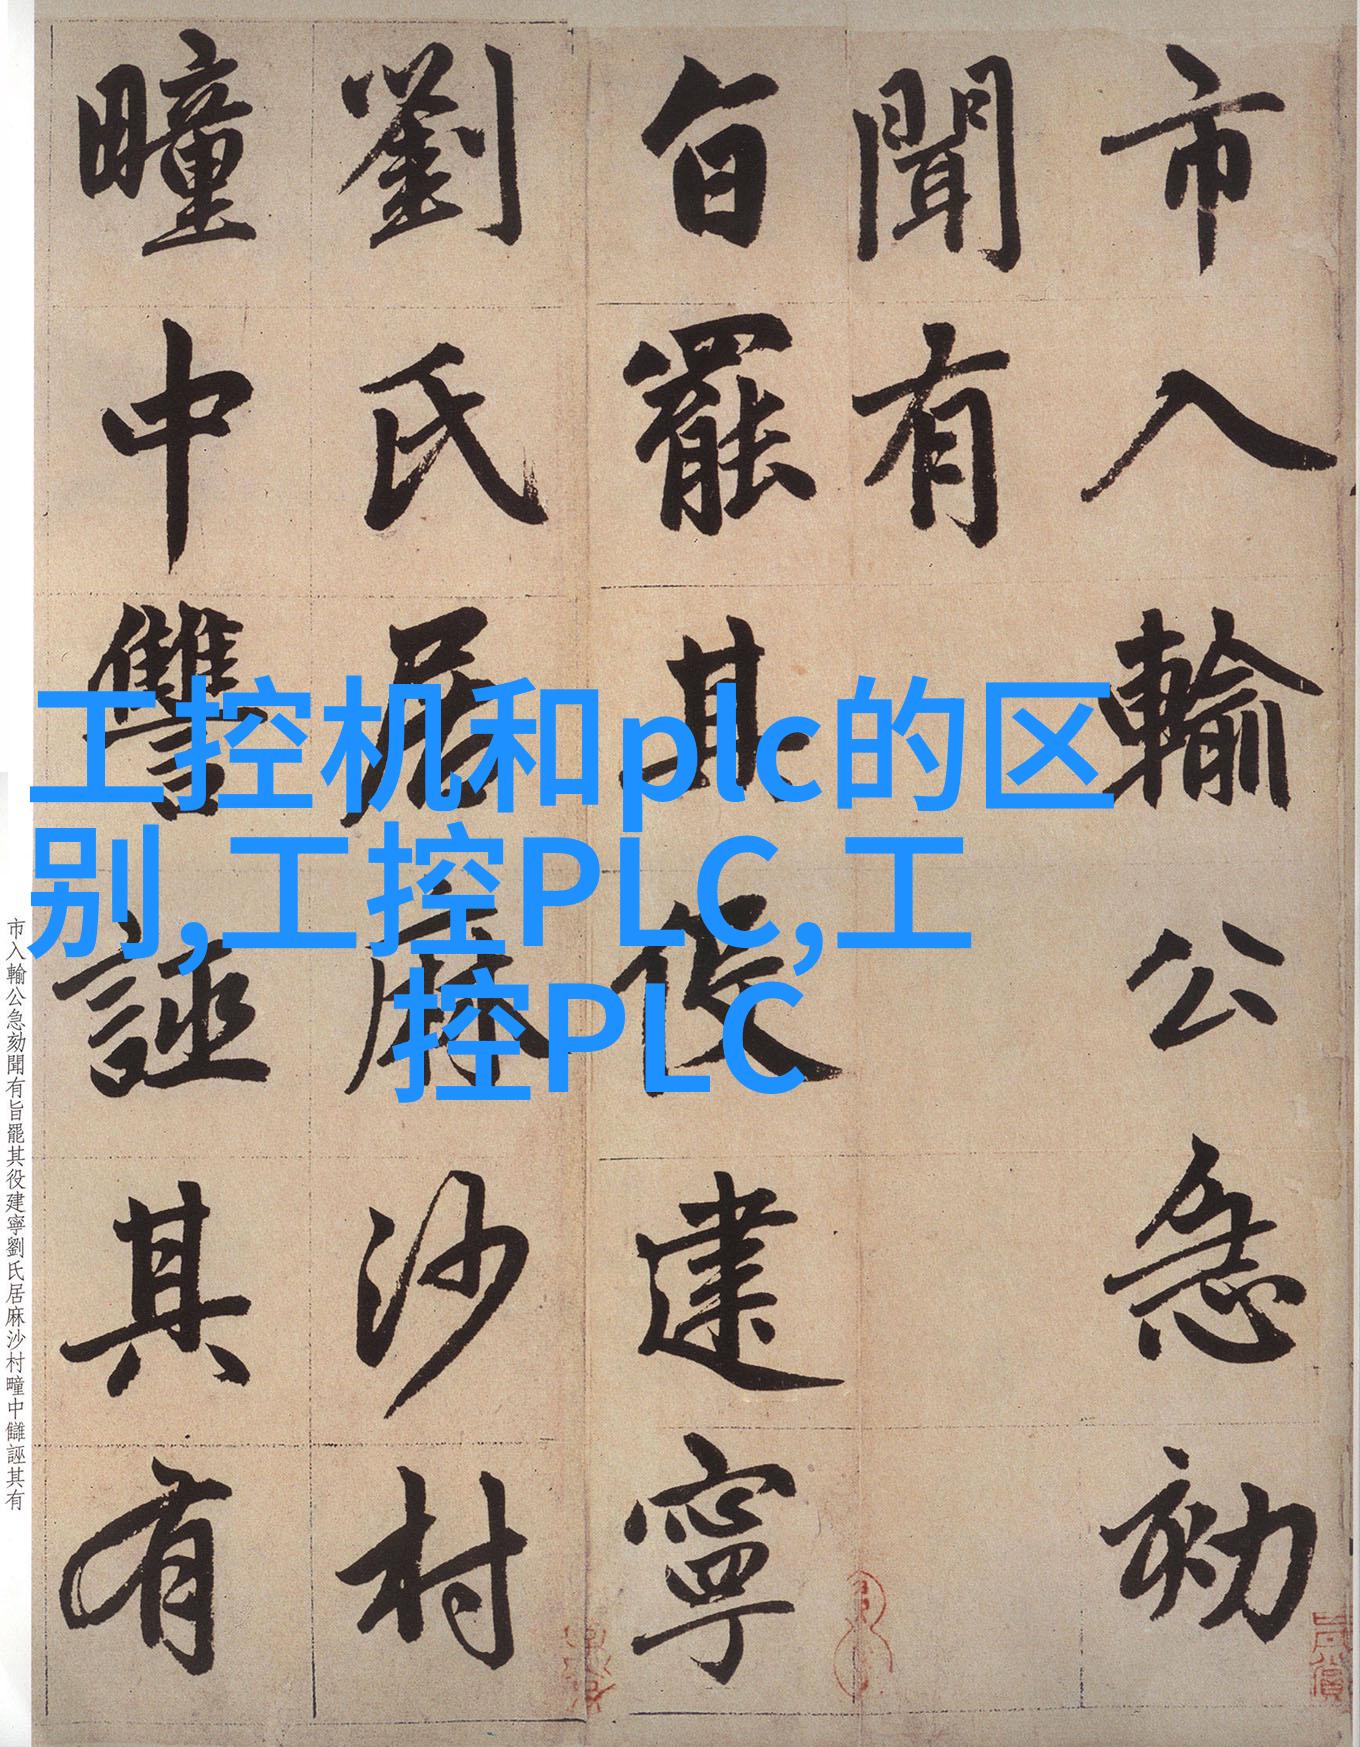 市入輸公急劾
聞有
旨罷其役建寧
劉氏居麻沙村
疃中讐誣其有
工控机和plc的区
别,工控PLC,工
控PLC
市入輸公急劾聞有旨罷其役建寧劉氏居麻沙村疃中讎誣其有